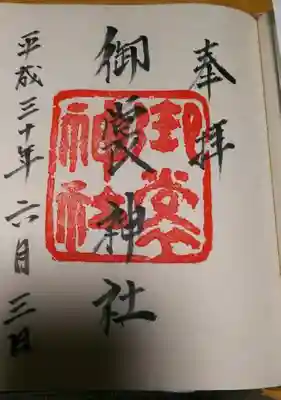 奉拝
御裳神社
平成三十年六月三日
御裳
神社